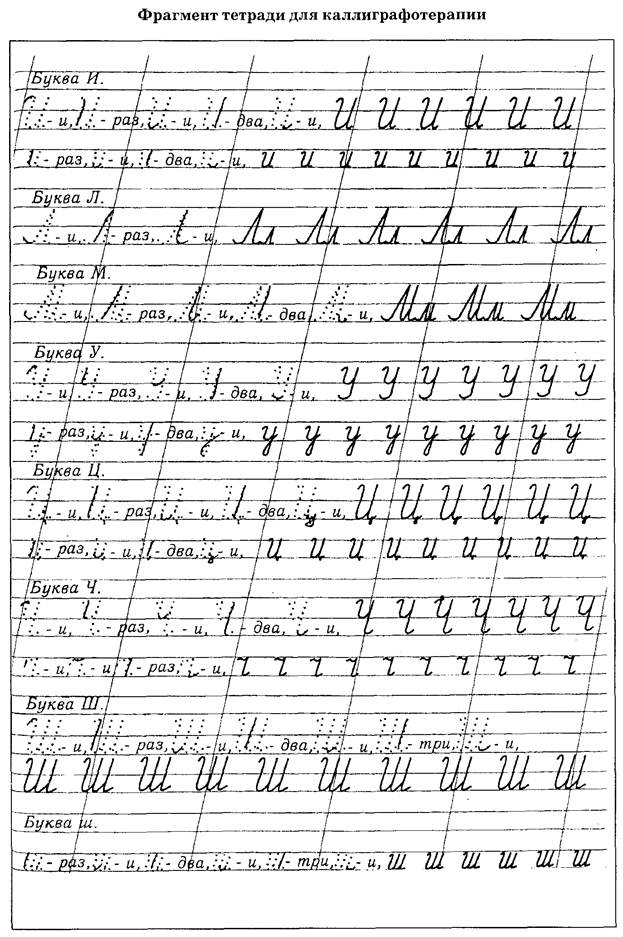 Фрагмент тетради для каллиграфотерапии
Буква И.
- и, - раз, - и, - два, - и, И И И И И И
- раз, - и, - два, - и, и и и и и и и и и
Буква Л.
- и, - раз, - и, Лл Лл Лл Лл Лл Лл
Буква М.
- и, - раз, - и, - два, - и, Мм Мм Мм
Буква У.
- и, - раз, - и, - два, - и, У У У У У У У
- раз, - и, - два, - и, у у у у у у у у у
Буква Ц.
- и, - раз, - и, - два, - и, Ц Ц Ц Ц Ц Ц
- раз, - и, - два, - и, ц ц ц ц ц ц ц ц ц
Буква Ч.
- и, - раз, - и, - два, - и, Ч Ч Ч Ч Ч Ч Ч
- и, - и - раз, - и, ч ч ч ч ч ч ч ч ч ч
Буква Ш.
- и, - раз, - и, - два, - и, - три, - и,
Ш Ш Ш Ш Ш Ш Ш Ш Ш Ш
Буква ш.
- раз, - и, - два, - и, - три, - и, ш ш ш ш ш ш